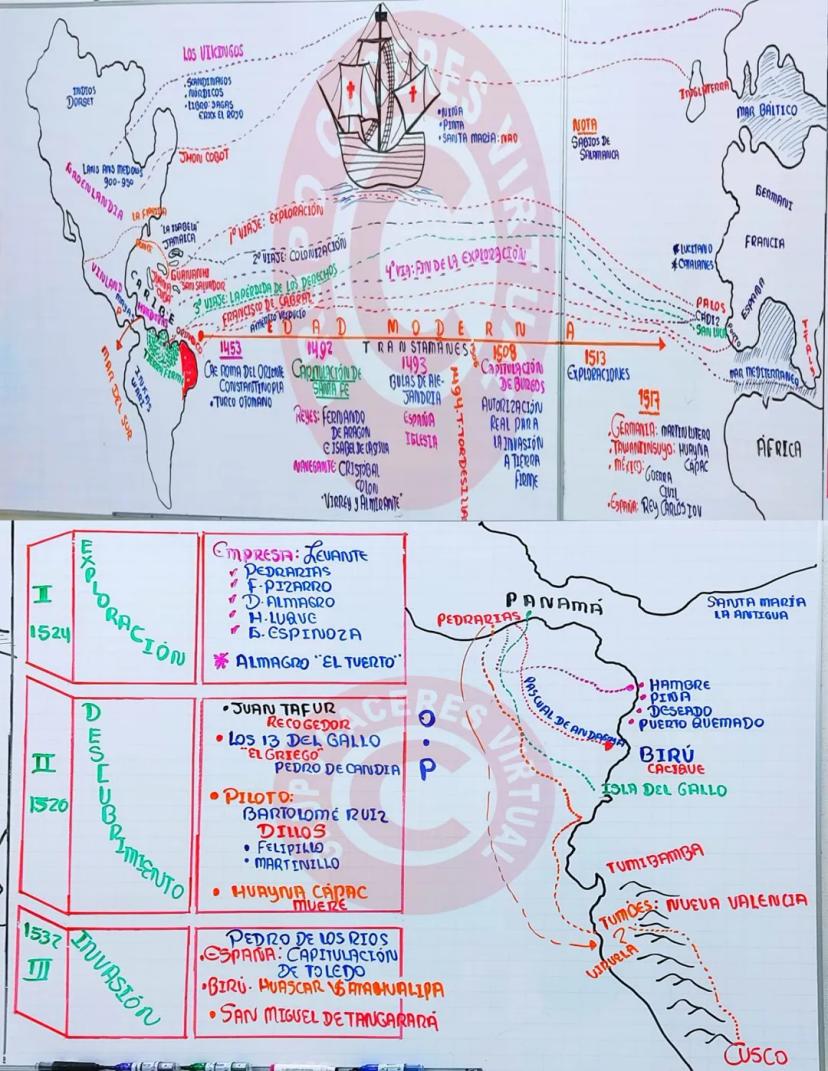 LOS VIKINGOS
• SCANDINAVOS
• NÓRDICOS
• LIBRO: SAGAS
ERIK EL ROJO
INDIOS
DORSET
JHON CABOT
LANS ANS MEDOWS
900-950
GROENLANDIA
• NIÑA
• PINTA
• SANTA MARÍA: NAO
NOTA
SABIOS DE
SALAMANCA
INGLATERRA
MAR BÁLTICO
GERMANI
FRANCIA
ESPAÑA
* LUCITANO
* CATALANES
PALOS
CADIZ
MAR MEDITERRANEO
ÁFRICA
LA FLORIDA
"LA ISABELA"
JAMAICA
GUANAHANI
SAN SALVADOR
VINLAND
CARIBE
1º VIAJE: EXPLORACIÓN
2º VIAJE: COLONIZACIÓN
3º VIAJE: LA PÉRDIDA DE LOS DERECHOS
4º VIA: FIN DE LA EXPLORACIÓN
FRANCISCO DE CABRAL
AMÉRICO VESPUCIO
MAR DEL SUR
TIERRA FIRME
EDAD MODERNA
TRANSTAMANES
1453
CAE ROMA DEL ORIENTE
CONSTANTINOPLA
• TURCO OTOMANO
1492
CAPITULACIÓN DE
SANTA FE
REYES: FERNANDO
DE ARAGON
E ISABEL DE CASTILLA
NAVEGANTE: CRISTOBAL
COLON
"VIRREY Y ALMIRANTE"
1493
BULAS DE ALE-
JANDRIA
ESPAÑA
IGLESIA
1494 T. TORDESILLAS
1508
CAPITULACIÓN
DE BURGOS
AUTORIZACIÓN
REAL PARA
LA INVASIÓN
A TIERRA
FIRME
1513
EXPLORACIONES
1517
• GERMANIA: MARTIN LUTERO
• TAWANTINSUYO: HUAYNA
CAPAC
• MÉXICO: GUERRA
CIVIL
• ESPAÑA: REY CARLOS I OV
I
1524
EXPLORACIÓN
EMPRESA: LEVANTE
PEDRARIAS
F. PIZARRO
D. ALMAGRO
H. LUQUE
G. ESPINOZA
* ALMAGRO "EL TUERTO"
II
1526
DESCUBRIMIENTO
• JUAN TAFUR
RECOGEDOR
• LOS 13 DEL GALLO
"EL GRIEGO"
PEDRO DE CANDIA
O
•
P
• PILOTO:
BARTOLOMÉ RUIZ
DILLOS
• FELIPILLO
• MARTINILLO
• HUAYNA CÁPAC
MUERE
1532
III
INVASIÓN
PEDRO DE LOS RIOS
• ESPAÑA: CAPITULACIÓN
DE TOLEDO
• BIRÚ. HUASCAR VS ATAHUALIPA
• SAN MIGUEL DE TANGARARÁ
PANAMÁ
PEDRARIAS
SANTA MARÍA
LA ANTIGUA
PASCUAL DE ANDAGOYA
• HAMBRE
• PIÑA
• DESEADO
• PUERTO QUEMADO
BIRÚ
CACIQUE
ISLA DEL GALLO
TUMIBAMBA
TUMBES: NUEVA VALENCIA
CUSCO
GRUPO CACERES VIRTUAL
GRUPO CACERES VIRTUAL